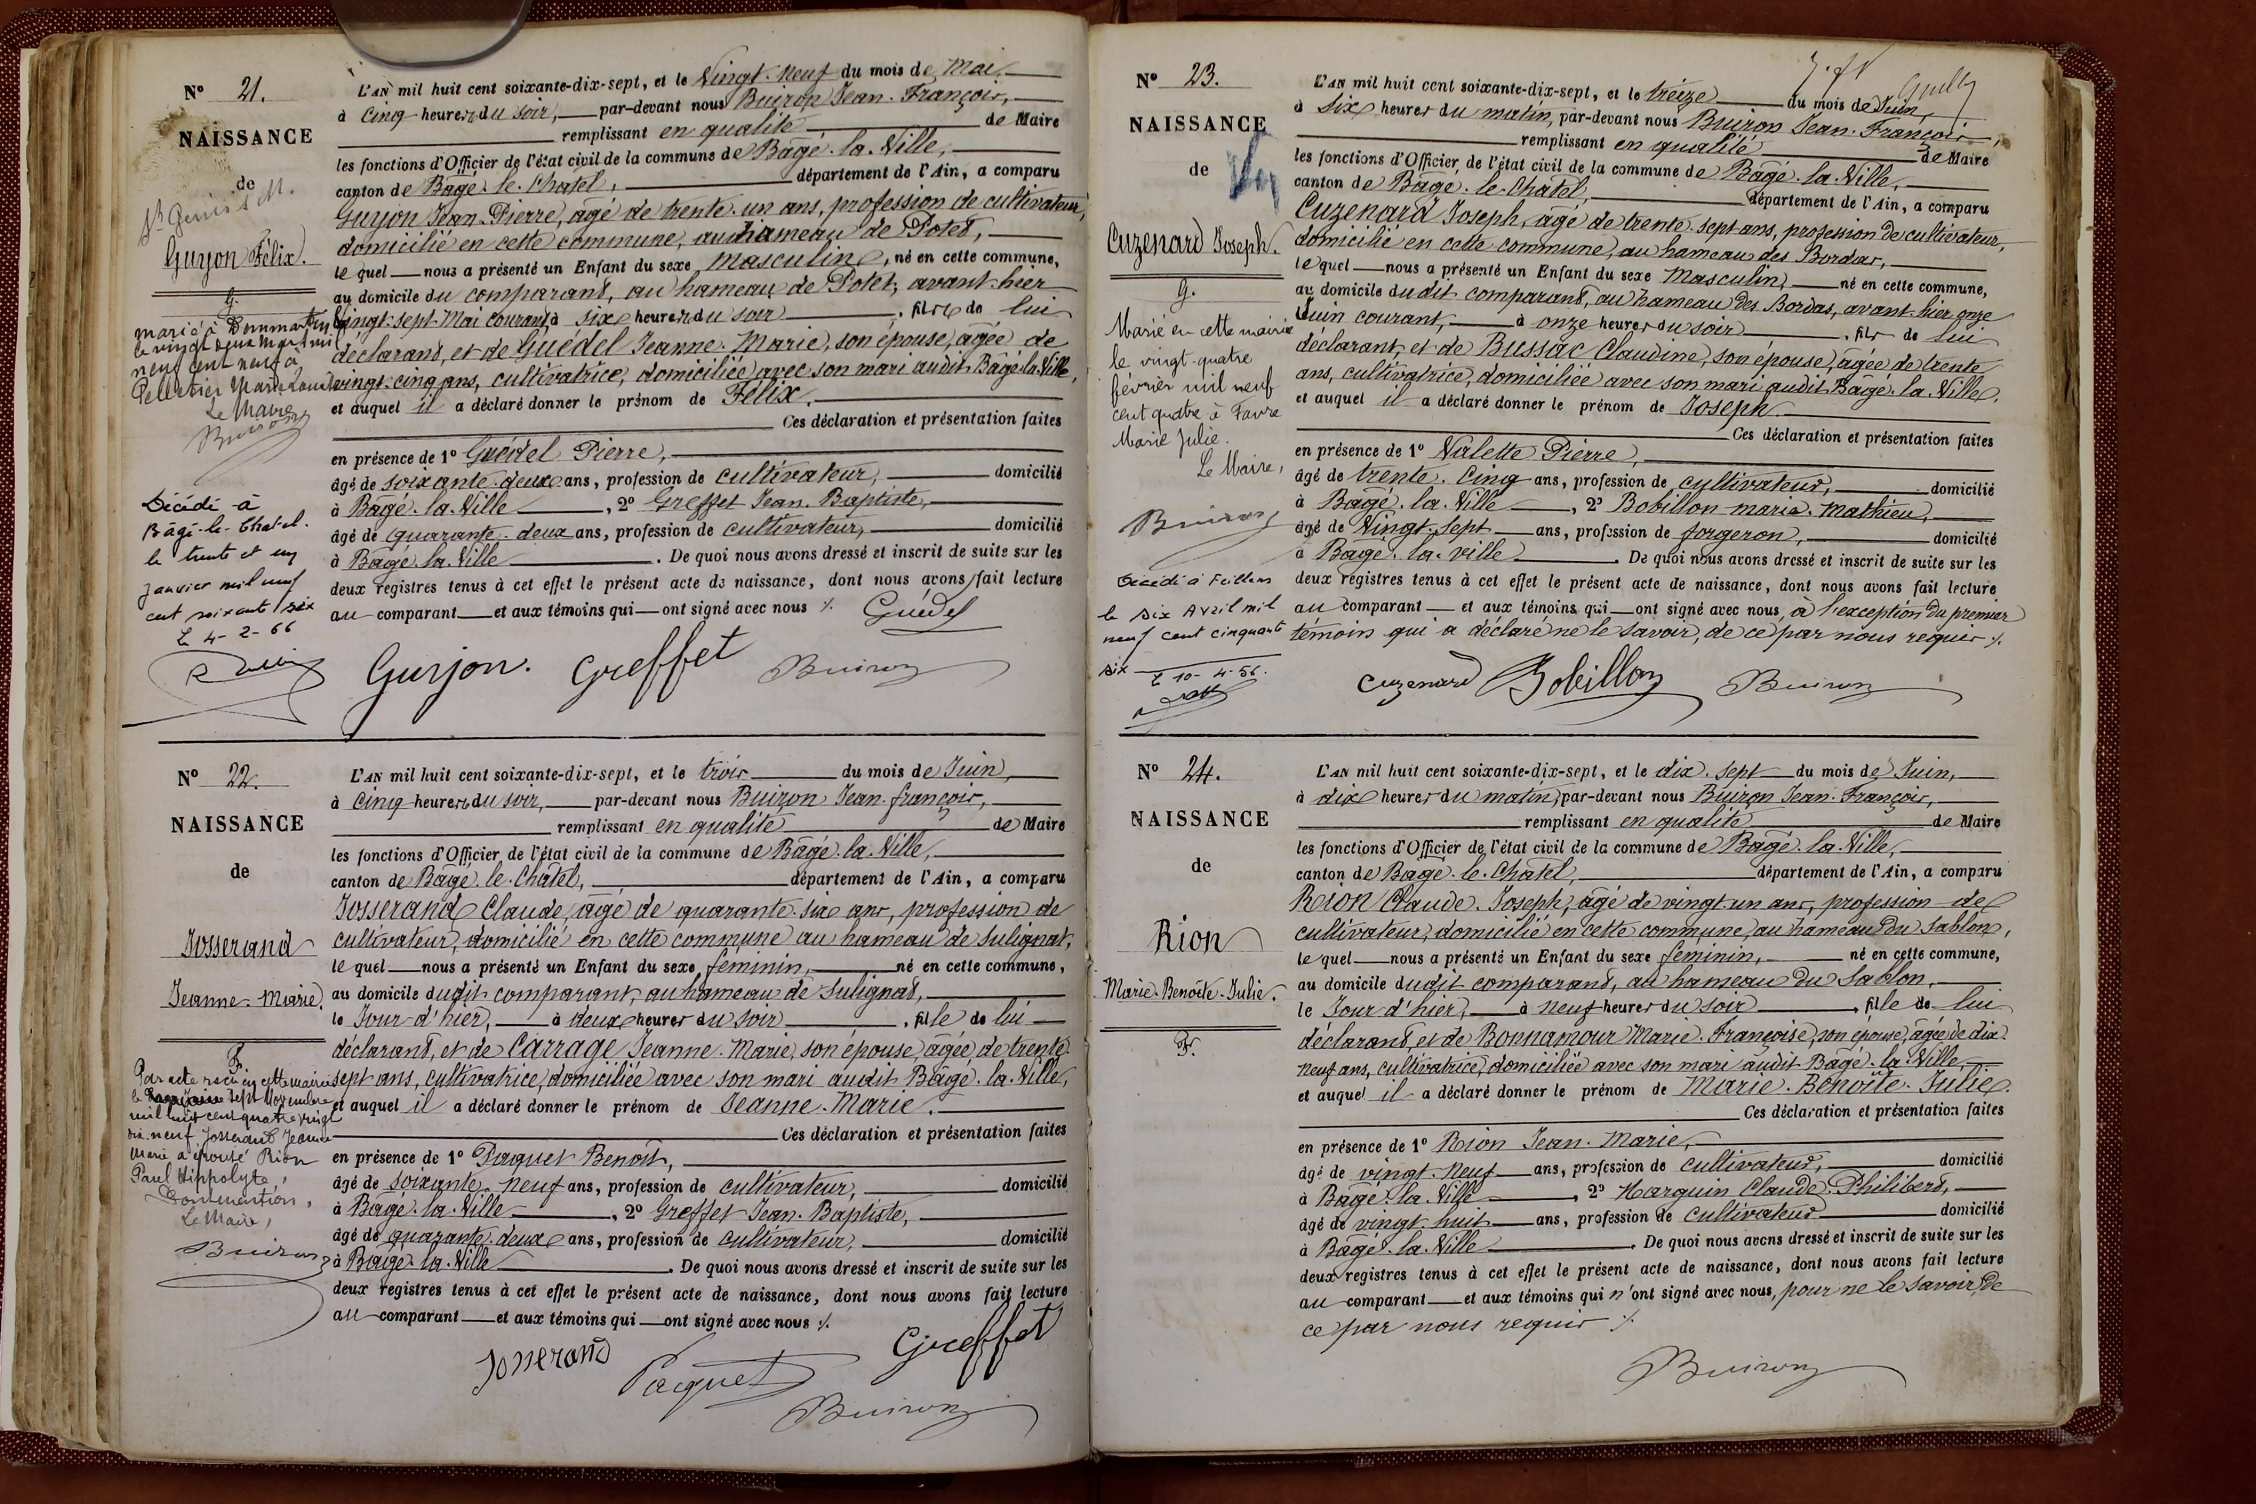 N° 21.
NAISSANCE
de
Guyon Félix.
G.
marié à Dommartin
le vingt deux mars mil
neuf cent neuf à
Pelletier Marie Louise
Le Maire
Buiron
Décédé à
Bâgé-le-Chatel.
le trente et un
janvier mil neuf
cent soixante six
Le 4-2-66
L'AN mil huit cent soixante-dix-sept, et le Vingt-neuf du mois de Mai,
à cinq heures du soir, par-devant nous Buiron Jean-François,
remplissant en qualité de Maire
les fonctions d'Officier de l'état civil de la commune de Bâgé-la-Ville,
canton de Bâgé-le-Chatel, département de l'Ain, a comparu
Guyon Jean-Pierre, âgé de trente-un ans, profession de cultivateur,
domicilié en cette commune, au hameau de Potet,
le quel nous a présenté un Enfant du sexe masculin, né en cette commune,
au domicile du comparant, au hameau de Potet, avant-hier
vingt-sept Mai courant, à six heures du soir, fils de lui
déclarant, et de Guédel Jeanne-Marie, son épouse, âgée de
vingt-cinq ans, cultivatrice, domiciliée avec son mari audit Bâgé-la-Ville,
et auquel il a déclaré donner le prénom de Félix.
Ces déclaration et présentation faites
en présence de 1° Guédel Pierre,
âgé de soixante-deux ans, profession de cultivateur, domicilié
à Bâgé-la-Ville, 2° Greffet Jean-Baptiste,
âgé de quarante-deux ans, profession de cultivateur, domicilié
à Bagé-la-Ville. De quoi nous avons dressé et inscrit de suite sur les
deux registres tenus à cet effet le présent acte de naissance, dont nous avons fait lecture
au comparant et aux témoins qui ont signé avec nous ./.
Guédel
Guyon. Greffet Buiron
N° 22.
NAISSANCE
de
Josserand
Jeanne-Marie.
F.
Par acte reçu en cette mairie
le sept Novembre
mil huit cent quatre vingt
dix-neuf Josserand Jeanne
Marie a épousé Rion
Paul Hippolyte,
Le Maire,
Buiron
L'AN mil huit cent soixante-dix-sept, et le trois du mois de Juin,
à cinq heures du soir, par-devant nous Buiron Jean-françois,
remplissant en qualité de Maire
les fonctions d'Officier de l'état civil de la commune de Bâgé-la-Ville,
canton de Bâgé-le-Châtel, département de l'Ain, a comparu
Josserand Claude, âgé de quarante-six ans, profession de
cultivateur, domicilié en cette commune au hameau de Sulignat,
le quel nous a présenté un Enfant du sexe féminin, né en cette commune,
au domicile dudit comparant, au hameau de Sulignat,
le Jour d'hier, à deux heures du soir, fille de lui
déclarant, et de Carrage Jeanne-Marie, son épouse, âgée de trente-
sept ans, cultivatrice, domiciliée avec son mari audit Bâgé-la-Ville,
et auquel il a déclaré donner le prénom de Jeanne-Marie.
Ces déclaration et présentation faites
en présence de 1° Paquet Benoit,
âgé de soixante-neuf ans, profession de cultivateur, domicilié
à Bâgé-la-Ville, 2° Greffet Jean-Baptiste,
âgé de quarante-deux ans, profession de cultivateur, domicilié
à Bâgé-la-Ville. De quoi nous avons dressé et inscrit de suite sur les
deux registres tenus à cet effet le présent acte de naissance, dont nous avons fait lecture
au comparant et aux témoins qui ont signé avec nous ./.
Josserand Paquet Greffet
Buiron
N° 23.
NAISSANCE
de
Cuzenard Joseph.
G.
Marié en cette mairie
le vingt-quatre
février mil neuf
cent quatre à Favre
Marie Julie.
Le Maire,
Buiron
Décédé à Feillens
le six Avril mil
neuf cent cinquante
six
Le 10-4-56.
L'AN mil huit cent soixante-dix-sept, et le treize du mois de Juin,
à six heures du matin, par-devant nous Buiron Jean-François,
remplissant en qualité de Maire
les fonctions d'Officier de l'état civil de la commune de Bâgé-la-Ville,
canton de Bâgé-le-Châtel, département de l'Ain, a comparu
Cuzenard Joseph, âgé de trente-sept ans, profession de cultivateur,
domicilié en cette commune, au hameau des Bordas,
le quel nous a présenté un Enfant du sexe Masculin, né en cette commune,
au domicile dudit comparant, au hameau des Bordas, avant-hier onze
Juin courant, à onze heures du soir, fils de lui
déclarant, et de Bussac Claudine, son épouse, âgée de trente
ans, cultivatrice, domiciliée avec son mari audit Bâgé-la-Ville,
et auquel il a déclaré donner le prénom de Joseph.
Ces déclaration et présentation faites
en présence de 1° Valette Pierre,
âgé de trente-cinq ans, profession de cultivateur, domicilié
à Bâgé-la-Ville, 2° Bobillon marie-Mathieu,
âgé de Vingt-sept ans, profession de forgeron, domicilié
à Bagé-la-ville. De quoi nous avons dressé et inscrit de suite sur les
deux registres tenus à cet effet le présent acte de naissance, dont nous avons fait lecture
au comparant et aux témoins qui ont signé avec nous, à l'exception du premier
témoin qui a déclaré ne le savoir, de ce par nous requis ./.
Cuzenard Bobillon Buiron
N° 24.
NAISSANCE
de
Rion
Marie-Benoîte-Julie.
F.
L'AN mil huit cent soixante-dix-sept, et le dix-sept du mois de Juin,
à dix heures du matin, par-devant nous Buiron Jean-François,
remplissant en qualité de Maire
les fonctions d'Officier de l'état civil de la commune de Bâgé-la-Ville,
canton de Bagé-le-Chatel, département de l'Ain, a comparu
Rion Claude-Joseph, âgé de vingt-un ans, profession de
cultivateur, domicilié en cette commune, au hameau du Sablon,
le quel nous a présenté un Enfant du sexe féminin, né en cette commune,
au domicile dudit comparant, au hameau du Sablon,
le Jour d'hier, à neuf heures du soir, fille de lui
déclarant, et de Bonnamour Marie-Françoise, son épouse, âgée de dix-
neuf ans, cultivatrice, domiciliée avec son mari audit Bâgé-la-Ville,
et auquel il a déclaré donner le prénom de Marie-Benoîte-Julie.
Ces déclaration et présentation faites
en présence de 1° Rion Jean-Marie,
âgé de vingt-neuf ans, profession de cultivateur, domicilié
à Bâgé-la-Ville, 2° Marguin Claude-Philibert,
âgé de vingt-huit ans, profession de cultivateur domicilié
à Bâgé-la-Ville. De quoi nous avons dressé et inscrit de suite sur les
deux registres tenus à cet effet le présent acte de naissance, dont nous avons fait lecture
au comparant et aux témoins qui n'ont signé avec nous, pour ne le savoir, de
ce par nous requis ./.
Buiron